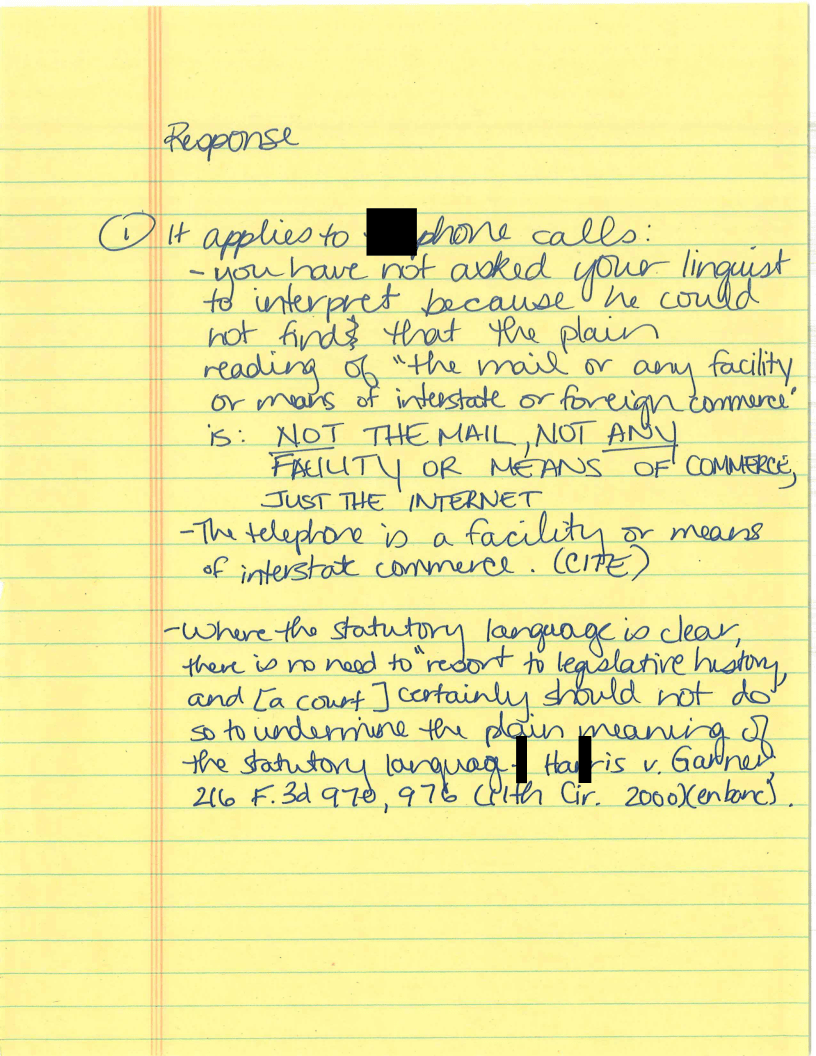 Response
① It applies to phone calls:
- you have not asked your linguist
to interpret because he could
not find that the plain
reading of "the mail or any facility
or means of interstate or foreign commerce"
is: NOT THE MAIL, NOT ANY
FACILITY OR MEANS OF COMMERCE,
JUST THE INTERNET
- The telephone is a facility or means
of interstate commerce. (CITE)
- Where the statutory language is clear,
there is no need to "resort to legislative history,
and [a court] certainly should not do
so to undermine the plain meaning of
the statutory languag Har ris v. Garner,
216 F.3d 970, 976 (11th Cir. 2000)(en banc).